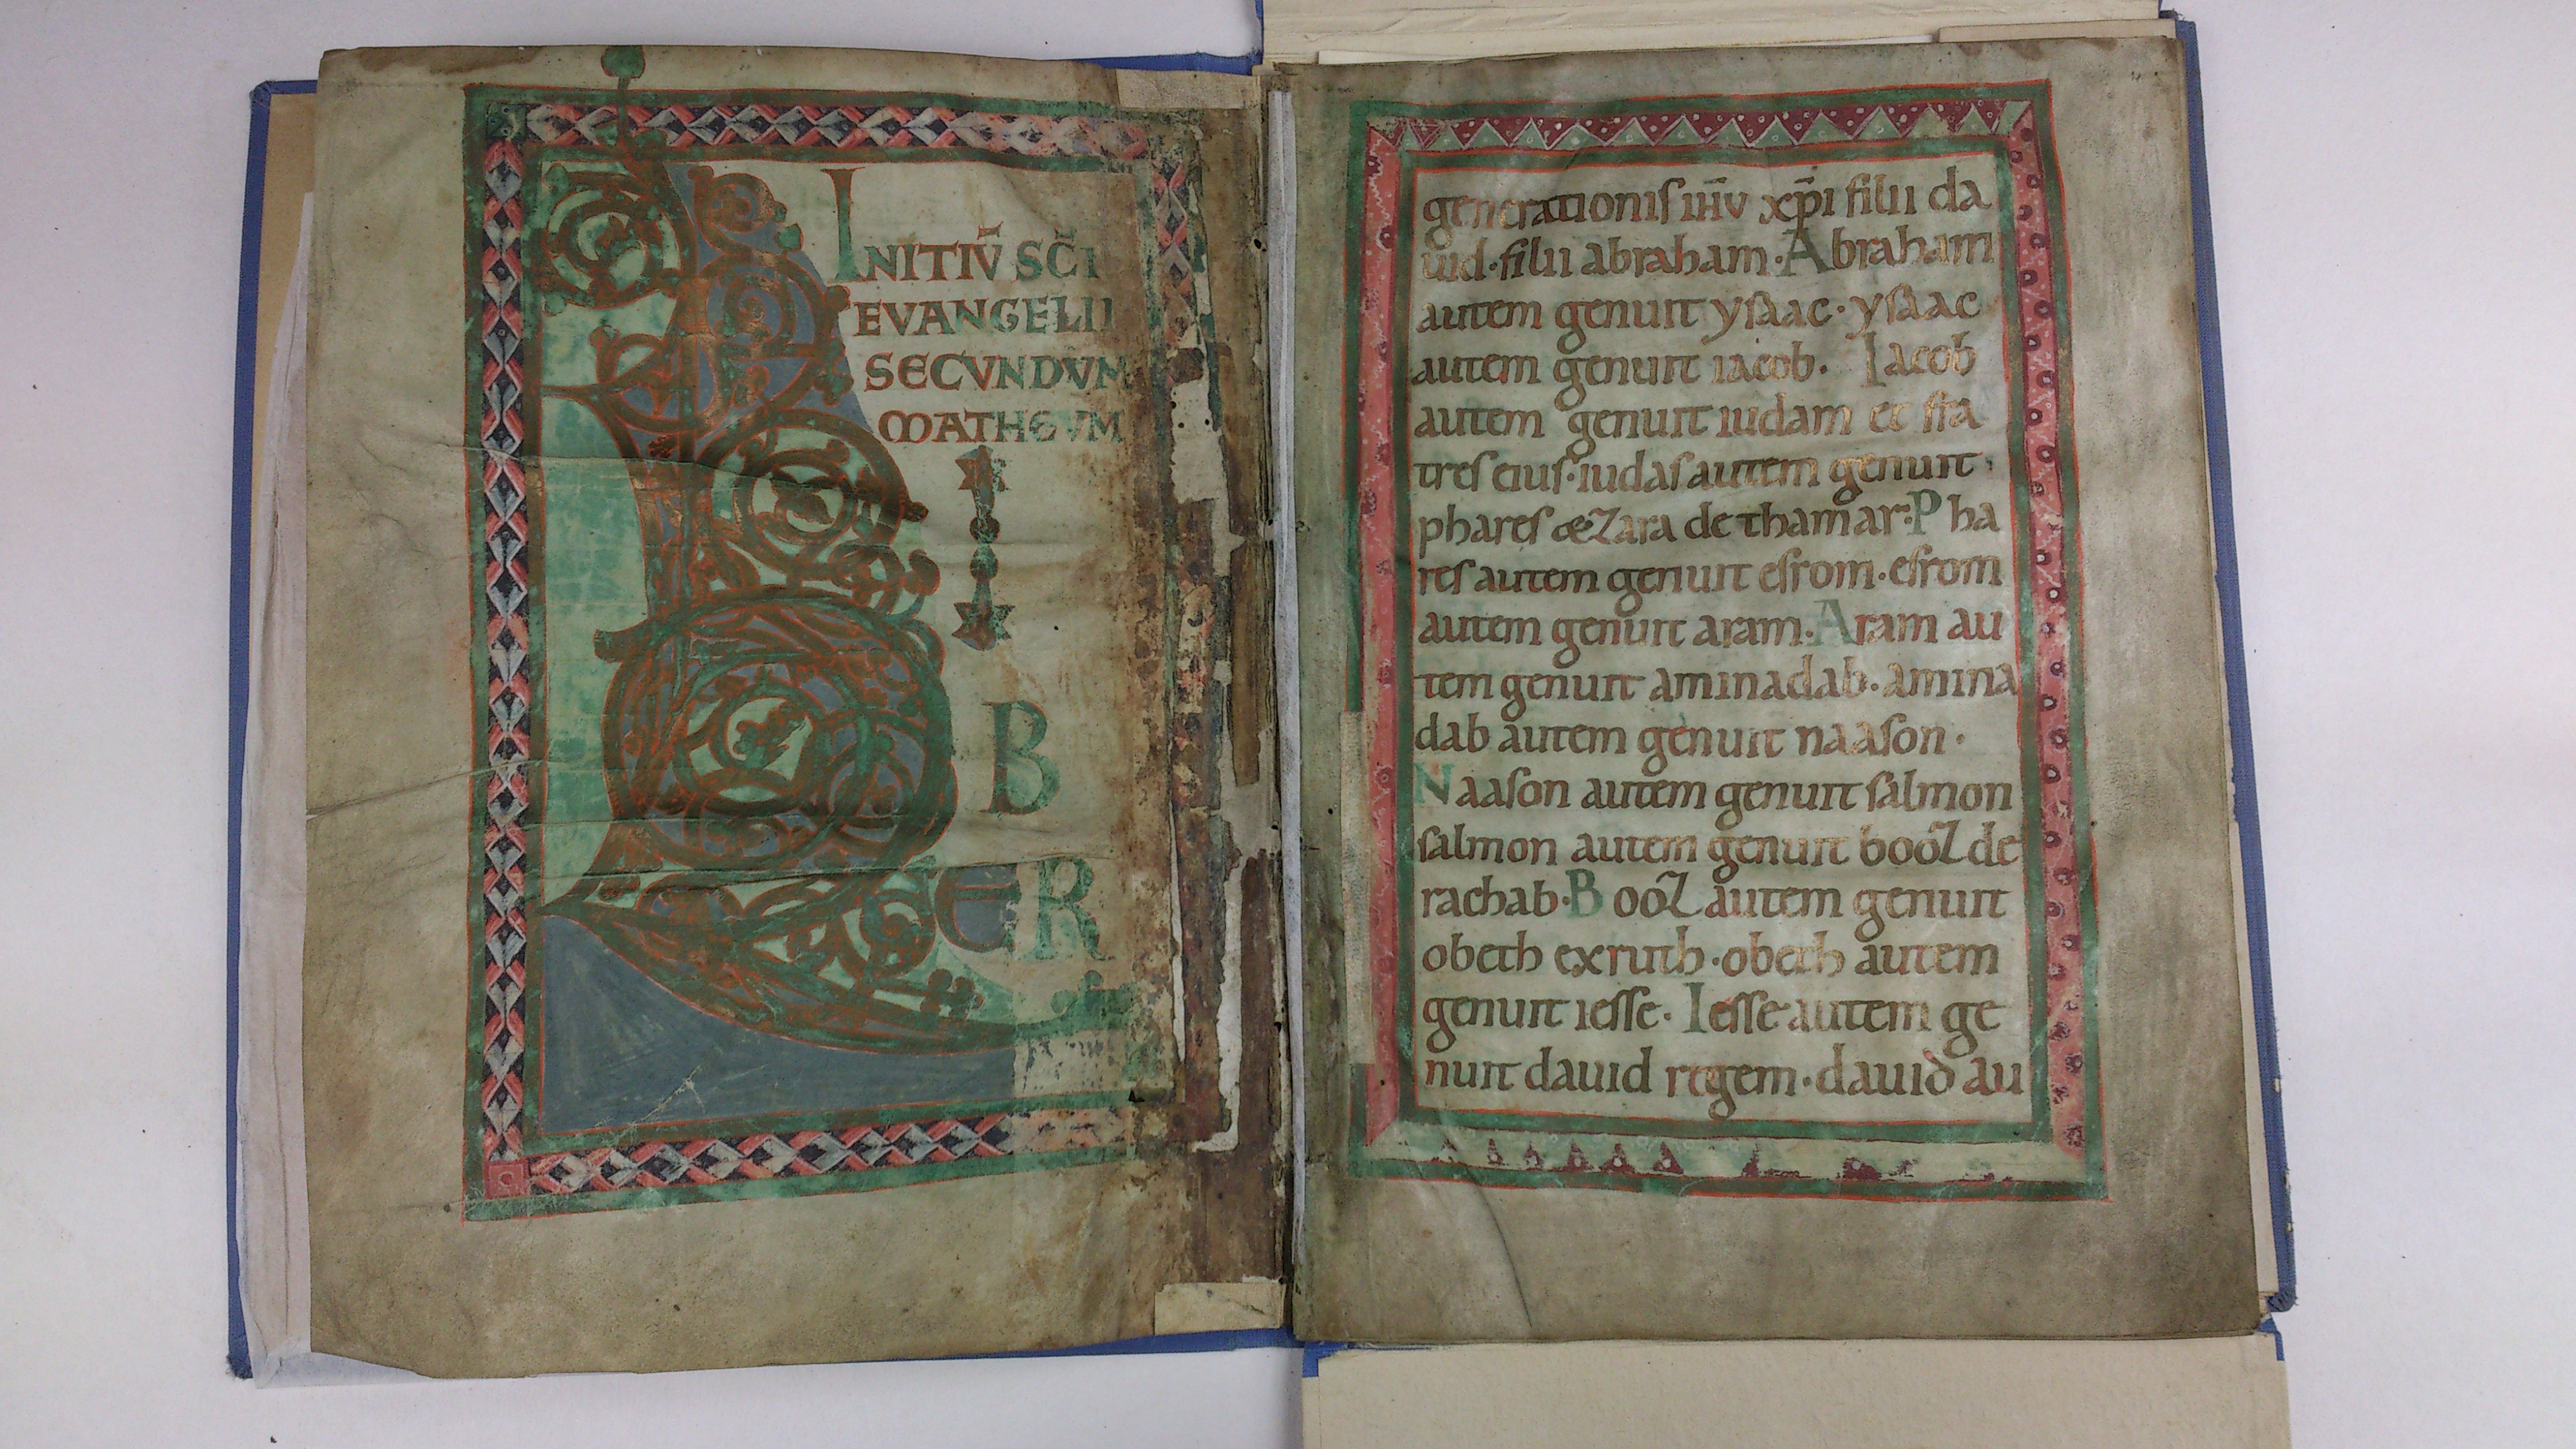 INITIV̄ SC̄I
EVANGELII
SECVNDVM
MATHEVM
L
I
B
ER
generationis ih̄u xp̄i filii da
uid · filii abraham · Abraham
autem genuit ysaac · ysaac
autem genuit iacob . Iacob
autem genuit iudam et fra
tres eius · iudas autem genuit
phares & zara de thamar · Pha
res autem genuit esrom · esrom
autem genuit aram · Aram au
tem genuit aminadab · amina
dab autem genuit naason ·
Naason autem genuit salmon
salmon autem genuit booz de
rachab · Booz autem genuit
obeth exruth · obeth autem
genuit iesse · Iesse autem ge
nuit dauid regem · dauid au